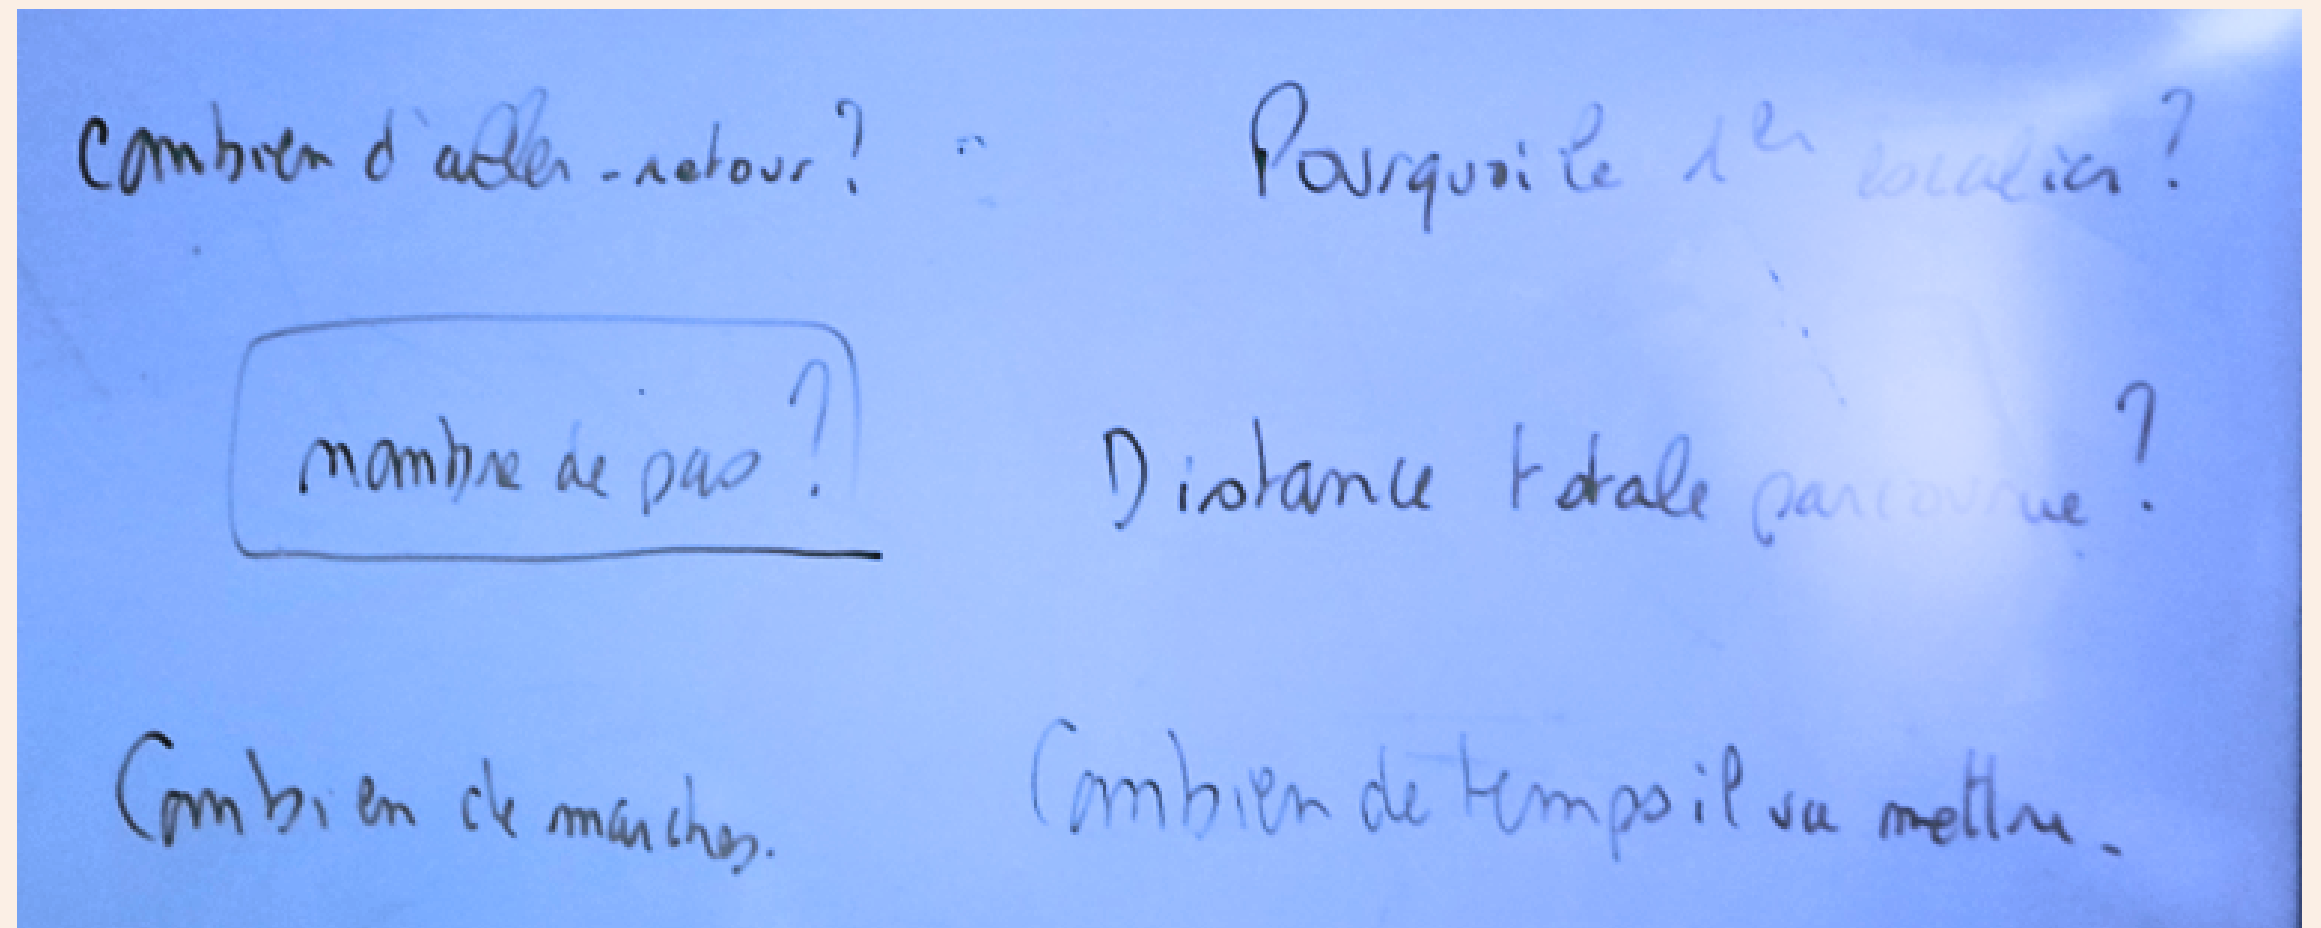 Combien d'aller-retour ?
Pourquoi le 1er escalier ?
nombre de pas ?
Distance totale parcourue ?
Combien de marches.
Combien de temps il va mettre.